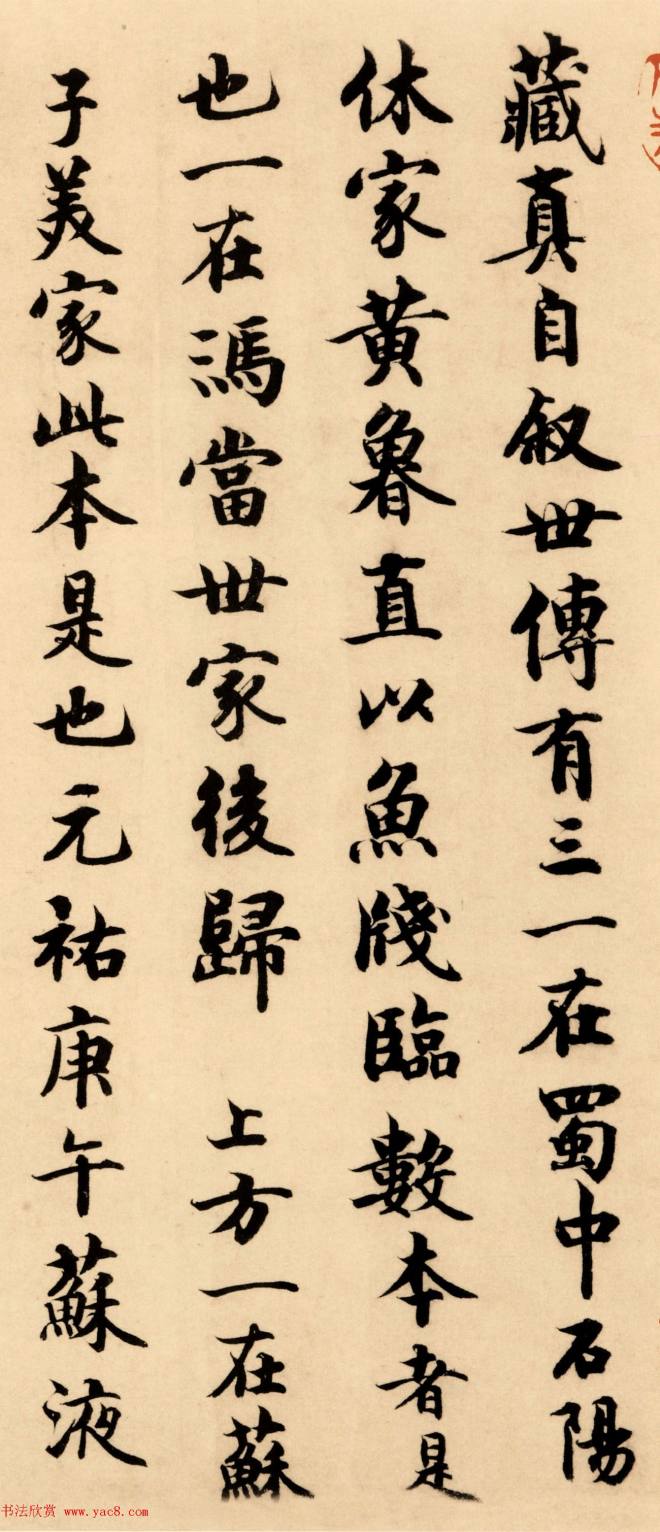 藏真自叙世傳有三一在蜀中石陽
休家黄魯直以魚牋臨數本者是
也一在馮當世家後歸 上方一在蘇
子美家此本是也元祐庚午蘇液
书法欣赏 www.yac8.com